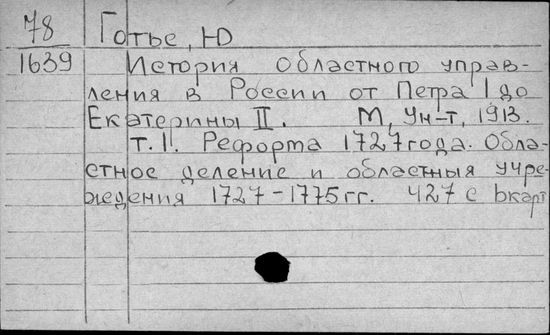 78 Готье, Ю
1639 История областного управ-
ления в России от Петра I до
Екатерины II. М, Ун-т, 1913.
т. I. Реформа 1727 года. Обла-
стное деление и областныя учре-
ждения 1727-1775 гг. 427 с 6карт